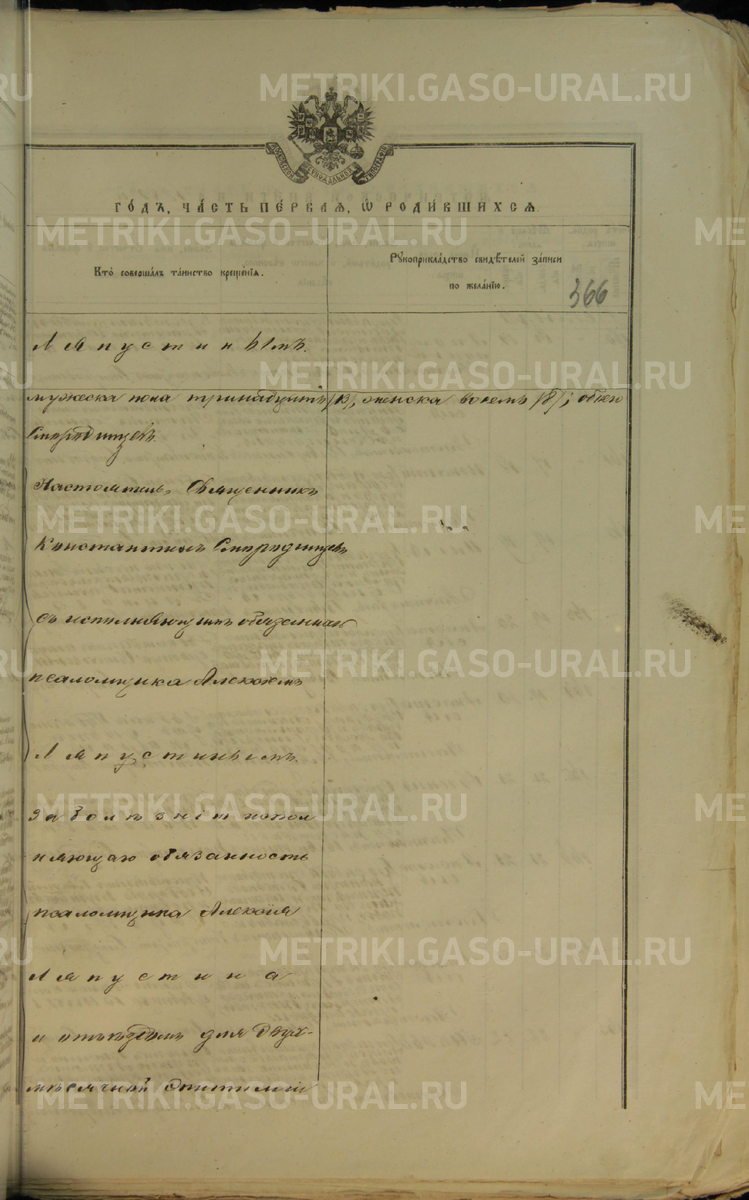 METRIKI.GASO-URAL.RU
ГО́ДЪ, ЧА́СТЬ ПЕ́РВАЯ, Ѡ҆ РОДИ́ВШИХСЯ.
Кто̀ соверша́лъ та́инство креще́нїѧ.
Рꙋкоприкла́дство свидѣ́телей за́писи
по жела́нїю.
366
Ляпустинымъ.
мужеска пола тринадцать /13/, женска восемь /8/; обоего
Настоятель Священникъ
Константинъ Смородинцевъ
съ исполняющимъ обязанность
псаломщика Алексіемъ
Ляпустинымъ.
За болѣзнію испол
няющаго обязанность
псаломщика Алексія
Ляпустина
и отъѣздомъ для двух-
мѣсячной эпитиміи